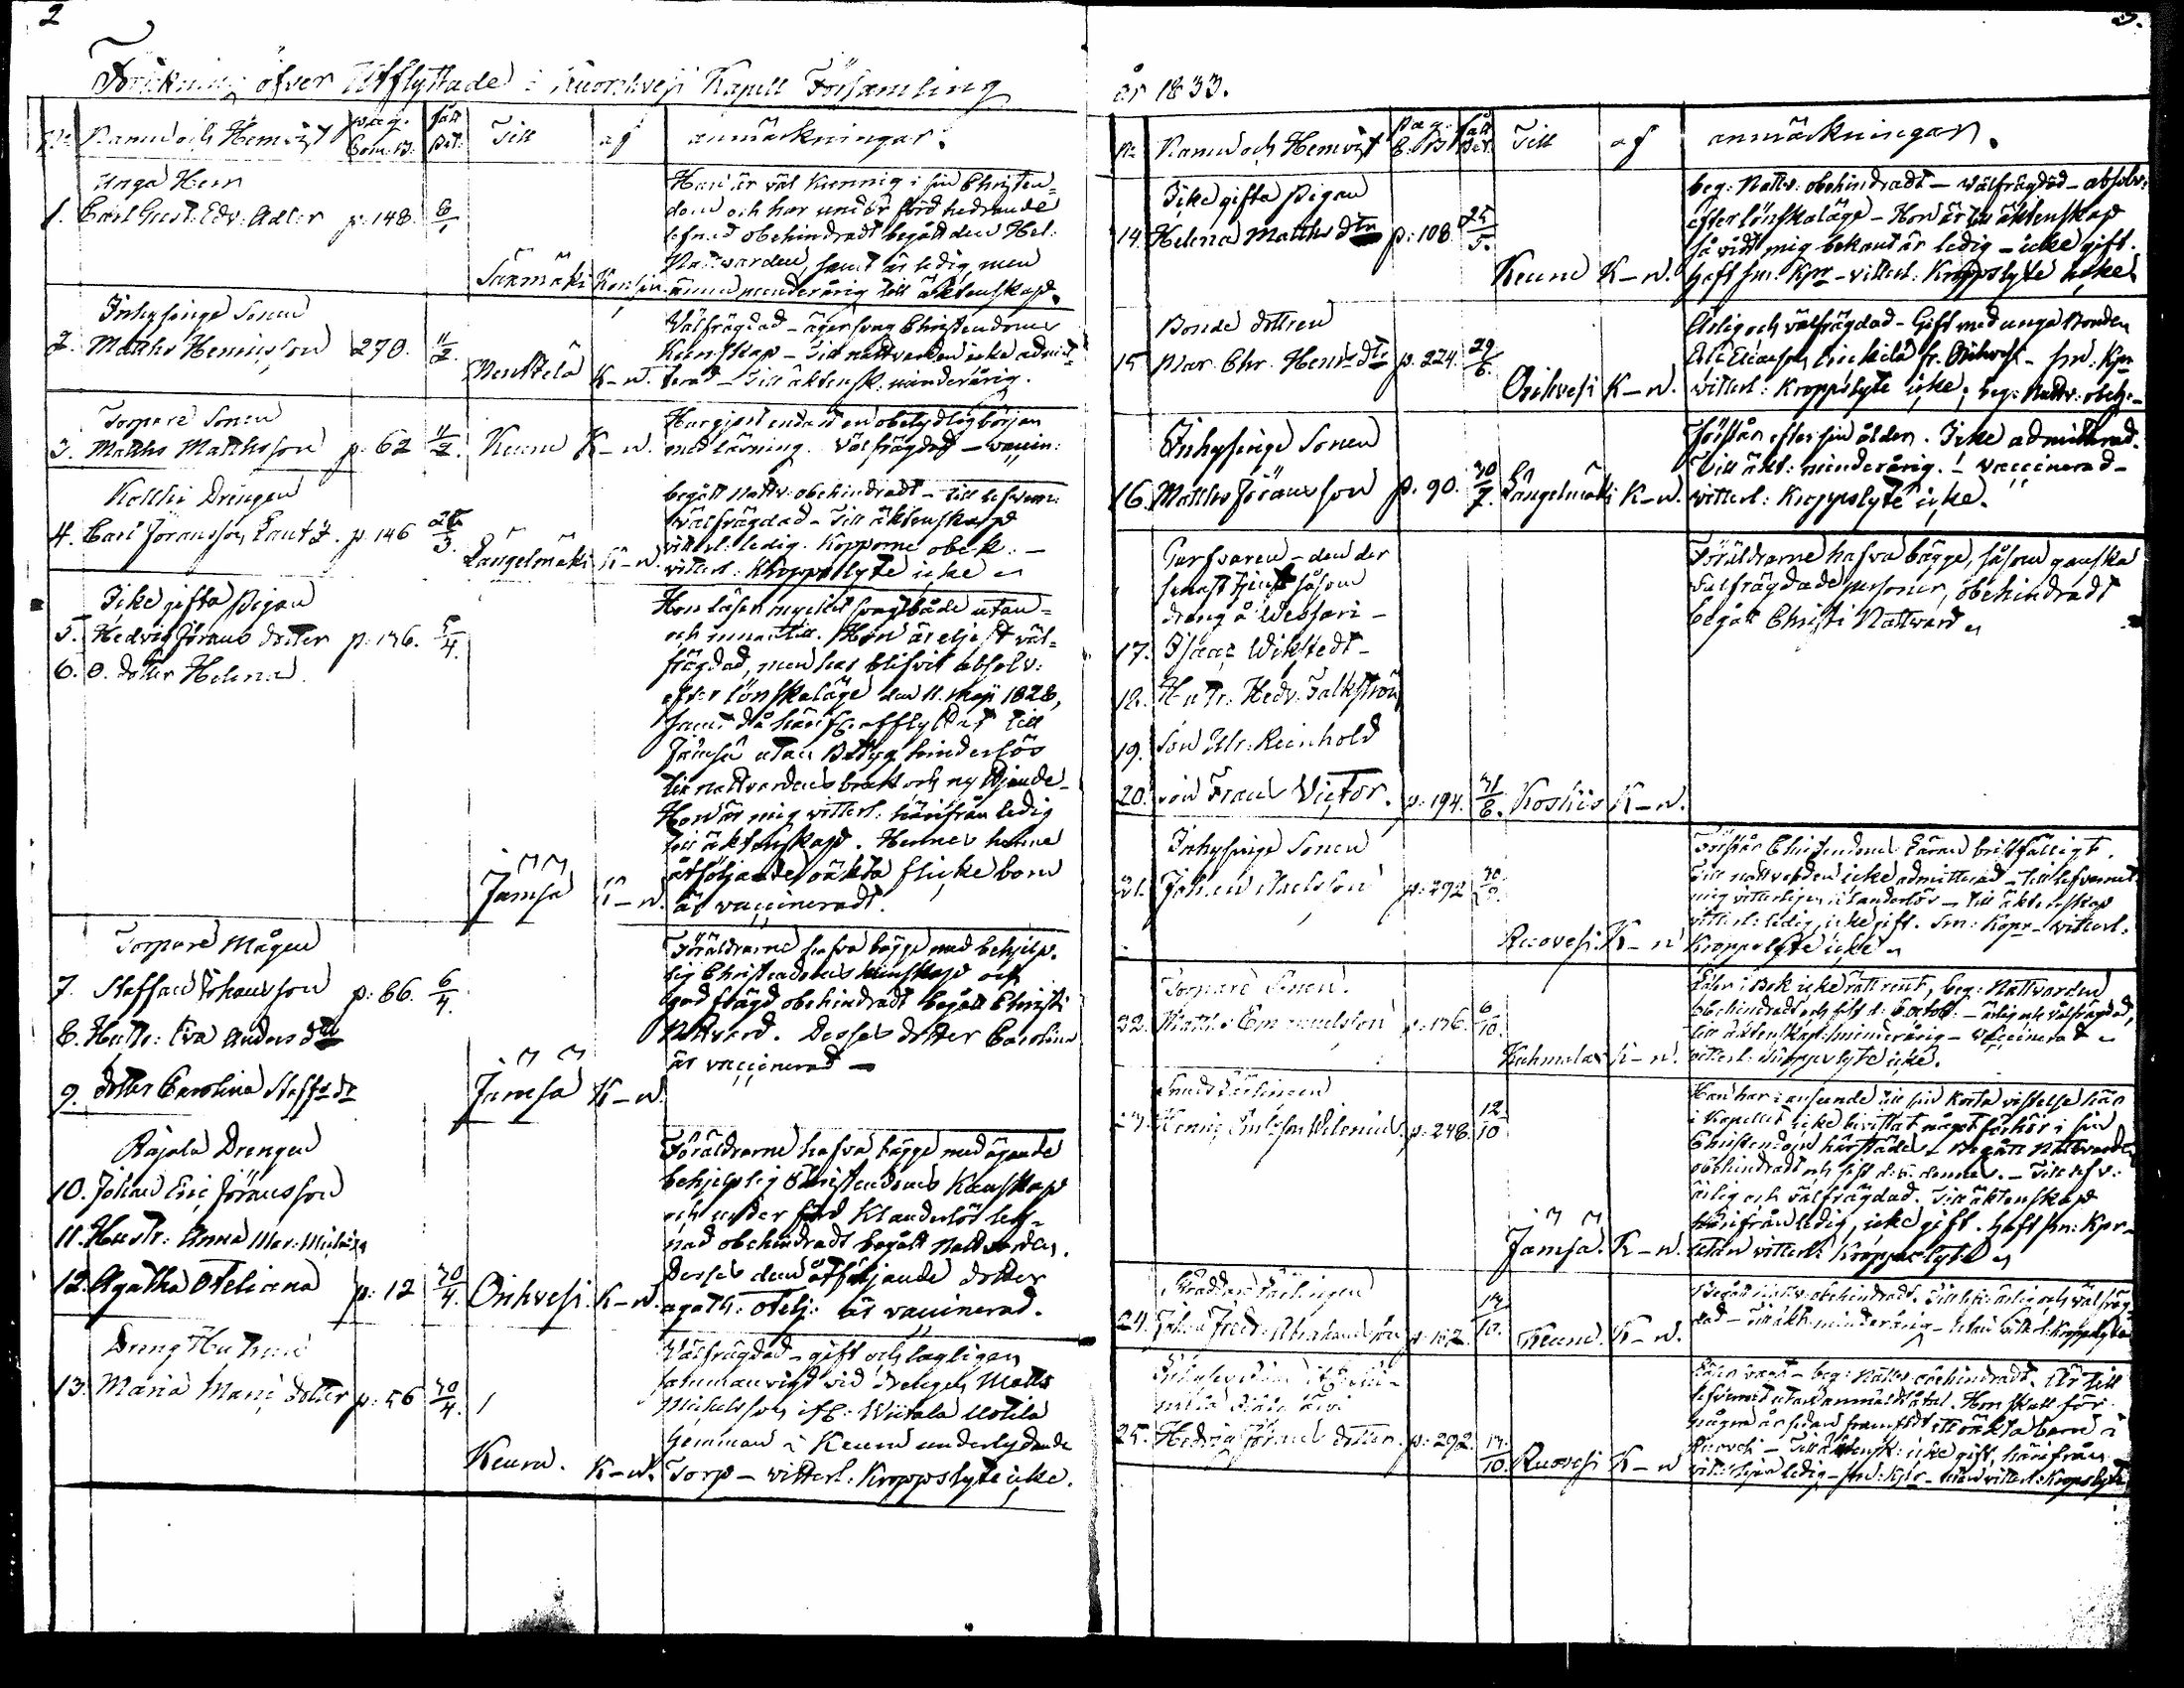 2
Förtekning öfver Utflyttade i Kuorehvesi Kapell Församling
No Namn och Hemvist pag. Com. B. fått Bet. Till af anmärkningar.
Unga Herrn
1. Carl Gust: Edv: Adler p: 148. 6/1
Sarmäki Konsin.
Han är väl kunnig i sin Christen=
dom och har under förd hedrande
lefnad obehindradt begått den Hel:
Nattvarden, samt är ledig, men
ännu minderårig till äktenskap.
Inhysinge Sonen
2. Matths Henricsson 270. 11/2.
K-n.
Välfrägdad - äger svag Christendoms
Kunskap - Till nattvarden icke admit-
terad - Till äktensk: minderårig.
Torpare Sonen
3. Matths Matthsson p: 62 11/2. Keuru K-n.
Har gjort endast en obetydlig början
med läsning. Välfrägdad - vaccin:
Kollki Drengen
4. Carl Göransson Lantz. p: 146 26/3.
Längelmäki K-n.
begått Nattv: obehindradt - Till lefvern:
välfrägdad - Till äktenskap
vitterl: ledig. Kopporne obek. -
vitterl: Kroppslyte icke
Icke gifta Pigan
5. Hedvig Görans dotter p: 136. 5/4.
6. O. dotter Helena.
Jämsä K-n.
Hon läser mycket svagt både utan=
och innantill. Hon är eljest väl=
frägdad, men har blifvit absolv:
efter lönskaläge den 11. Maji 1828,
samt då härifr. afflyttat till
Jämsä utan Betyg hinderlös
till nattvardens bruk och nyttjande -
Hon är mig vitterl: härifrån ledig
till äktenskap. Hennes henne
åtföljande oäkta flicke barn
är vaccineradt.
Torpare Mågen
7. Staffan Johansson p: 66. 6/4.
8. Hustr: Eva Anders dtr
9. dotter Carolina Staffs dr
Jämsä K-n.
Föräldrarne hafva bägge med behjelp-
lig Christendoms kunskap och
god frägd obehindradt begått Christi
Nattvard. Desses dotter Carolina
är vaccinerad -
Rajala Drengen
10. Johan Eric Göransson
11. Hustr: Anna Mar: Michelsd
12. Agatha Oteliana p: 12 30/4. Orihvesi. K-n.
Föräldrarne hafva bägge med ägande
behjelplig Christendoms Kunskap
och under förd klanderlös lef-
nad obehindradt begått Nattvarden.
Desses dem åtföljande dotter
Agath: Otelj: är vaccinerad.
Dreng Hustrun
13. Maria Marci dotter p: 56 30/4.
Keuru. K-n.
Välfrägdad - gift och lagligen
sammanvigd vid drengen Matts
Michelsson ifr: Wiitala Uotila
hemman i Keuru underlydande
Torp - vitterl: Kroppslyte icke.
3.
år 1833.
No Namn och Hemvist pag: C: B. fått Bet. Till af anmärkningar.
Icke gifta Pigan
14. Helena Matths dtr p: 108 25/5.
Keuru K-n.
beg: Nattv: obehindradt - välfrägdad - absolv:
efter lönskaläge - Hon är till äktenskap
så vidt mig bekant är ledig - icke gift.
haft sm: Kpr - vitterl: Kroppslyte icke
Bonde dottren
15 Mar. Chr. Henrs dr p: 224. 29/6.
Orihvesi K-n.
Ärlig och välfrägdad - Gift med unga Bonden
fr. Orihvesi - sm: Kpr
vitterl: Kroppslyte icke, beg: Nattv: obeh: -
Inhysinge Sonen
16. Matths Göransson p. 90. 30/7. Längelmäki K-n.
Förstår efter sin ålder. Icke admitterad.
Till äkt: minderårig. - vaccinerad -
vitterl: Kroppslyte icke.
Garfvaren - den der
senast tjent såsom
dreng å Wessari -
17. Isaac Wikstedt -
18. Hustr. Hedv. Falkström
19. son Ulr. Reinhold
20. son Frans Victor. p: 194. 31/8. Koskis K-n.
Föräldrarne hafva bägge, såsom ganska
välfrägdade personer, obehindradt
begått Christi Nattvard
Inhysinge Sonen
21. Johan p: 292 30/9.
Ruovesi. K-n
Förstår Christendoms Läran bristfälligt.
Till nattvarden icke admitterad - till lefvernet
mig vitterligen oklanderlös - till äktenskap
vitterl: ledig, icke gift. Sm: Kopr - vitterl.
Kroppslyte icke
Torpare Sonen.
22. Matths Emanuelsson p: 136. 6/10.
Kuhmalax K-n.
Läser i Bok icke rätt rent, beg: Nattvarden
obehindradt och sist d: Octob: - ärlig och välfrägdad,
till äktenskap: minderårig - vaccinerad
vitterl: Kroppslyte icke.
Smeds Lärlingen
23 Henric Wilenius. p: 248. 12/10
Jämsä. K-n.
Han har i anseende till sin korta vistelse här
i Kapellet icke bevistat något förhör i sin
Christendom härstädes - Begått Nattvarden
obehindradt och sist d: 6. dennes. - Till lefv:
ärlig och välfrägdad. Till äktenskap
härifrån ledig, icke gift. haft sm: Kpr -
utan vitterl: Kroppslyte
Skräddare Lärlingen
24. Johan Fredr: Abrahamsson p: 132. 13/10. Keuru. K-n.
Begått nattv: obehindradt. Till lefv: ärlig och välfräg
dad - Till äkt: minderårig - utan vitterl: Kroppslyte
25. Hedvig Görans dotter. p: 292. 13/10. Ruovesi K-n
Läser svagt - beg: Nattv: obehindradt. Är till
lefvernet utan anmäldt åtal. Hon skall för
några år sedan framfödt ett oäkta barn i
Ruovesi - Till äktensk: icke gift, härifrån
vitterligen ledig - sm: Kpr - utan vitterl: Kroppslyte